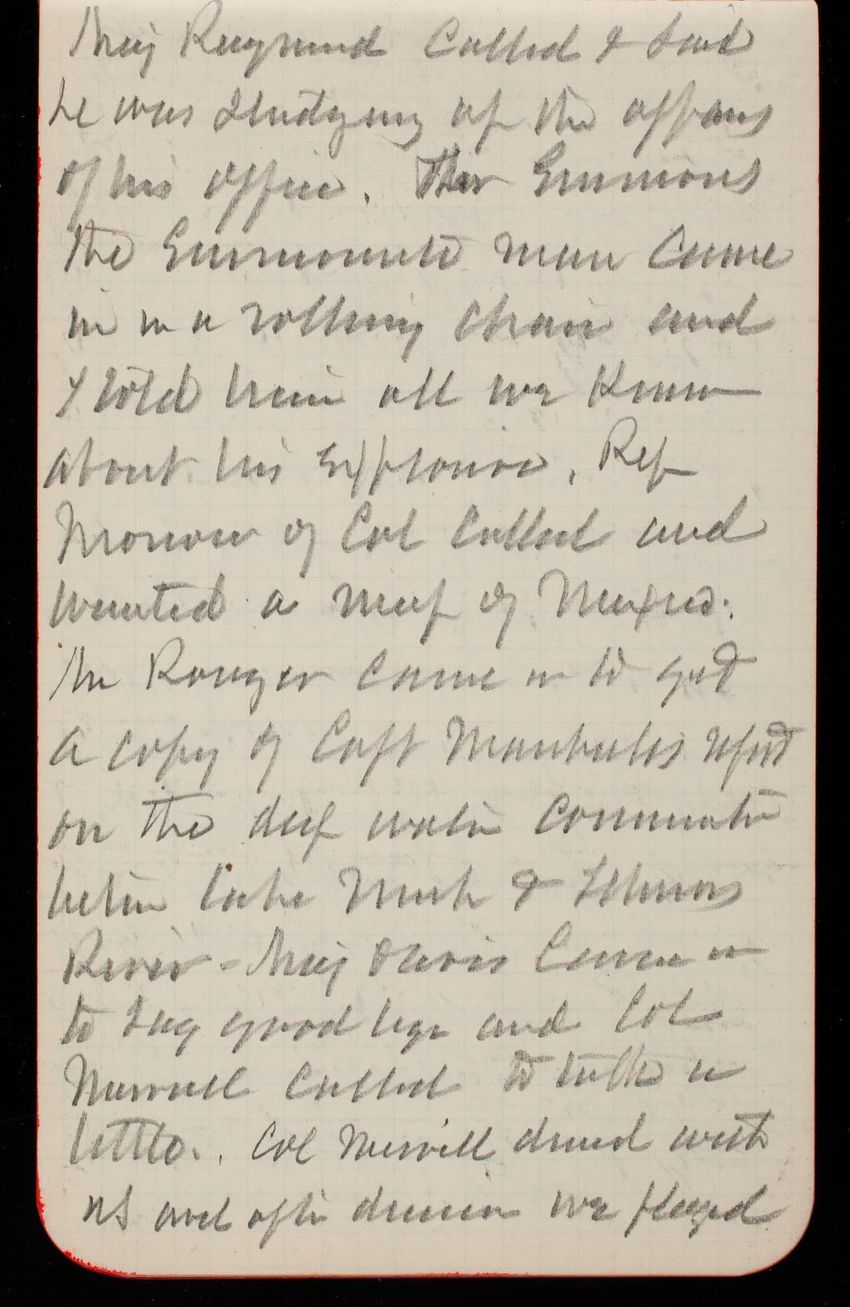 Maj Raymond Called & said
he was studying up the affairs
of his office. Then Emmons
the Emmonsite man Came
in in a rolling chair and
I told him all we Know
about his Explosive. Rep
Morrow of Cal Called and
wanted a map of Mexico.
Mr came in to get
a copy of Capt Marshalls report
on the deep water Communcatn
betwn Lake Mich & Illinois
River - Maj Davis Came in
to say good bye and Col
Merrill Called to talk a
little.. Col Merrill dined with
us and after dinner we played